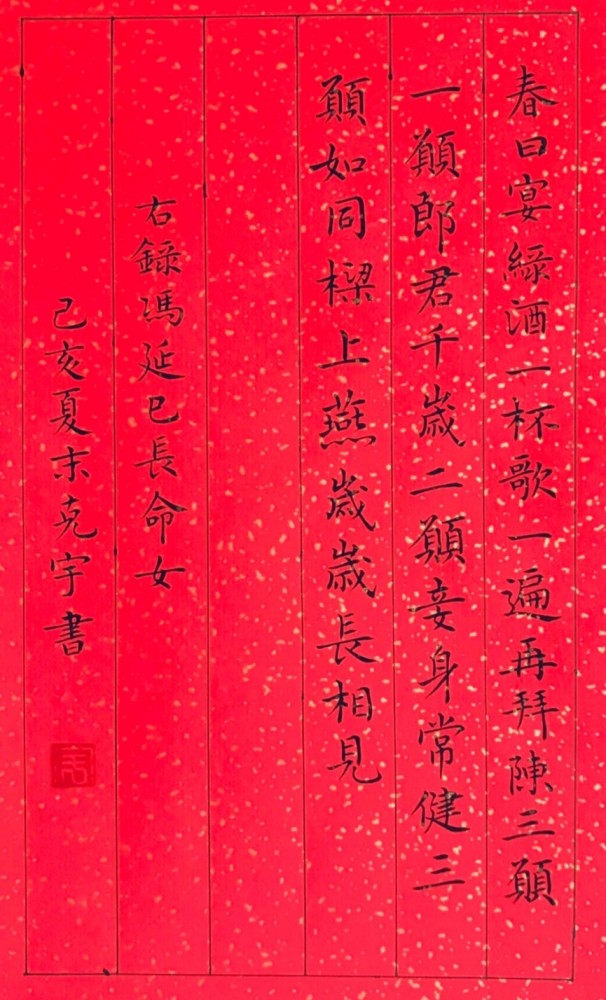 春日宴綠酒一杯歌一遍再拜陳三願
一願郎君千歲二願妾身常健三
願如同樑上燕歲歲長相見
右錄馮延巳長命女
己亥夏末克宇書